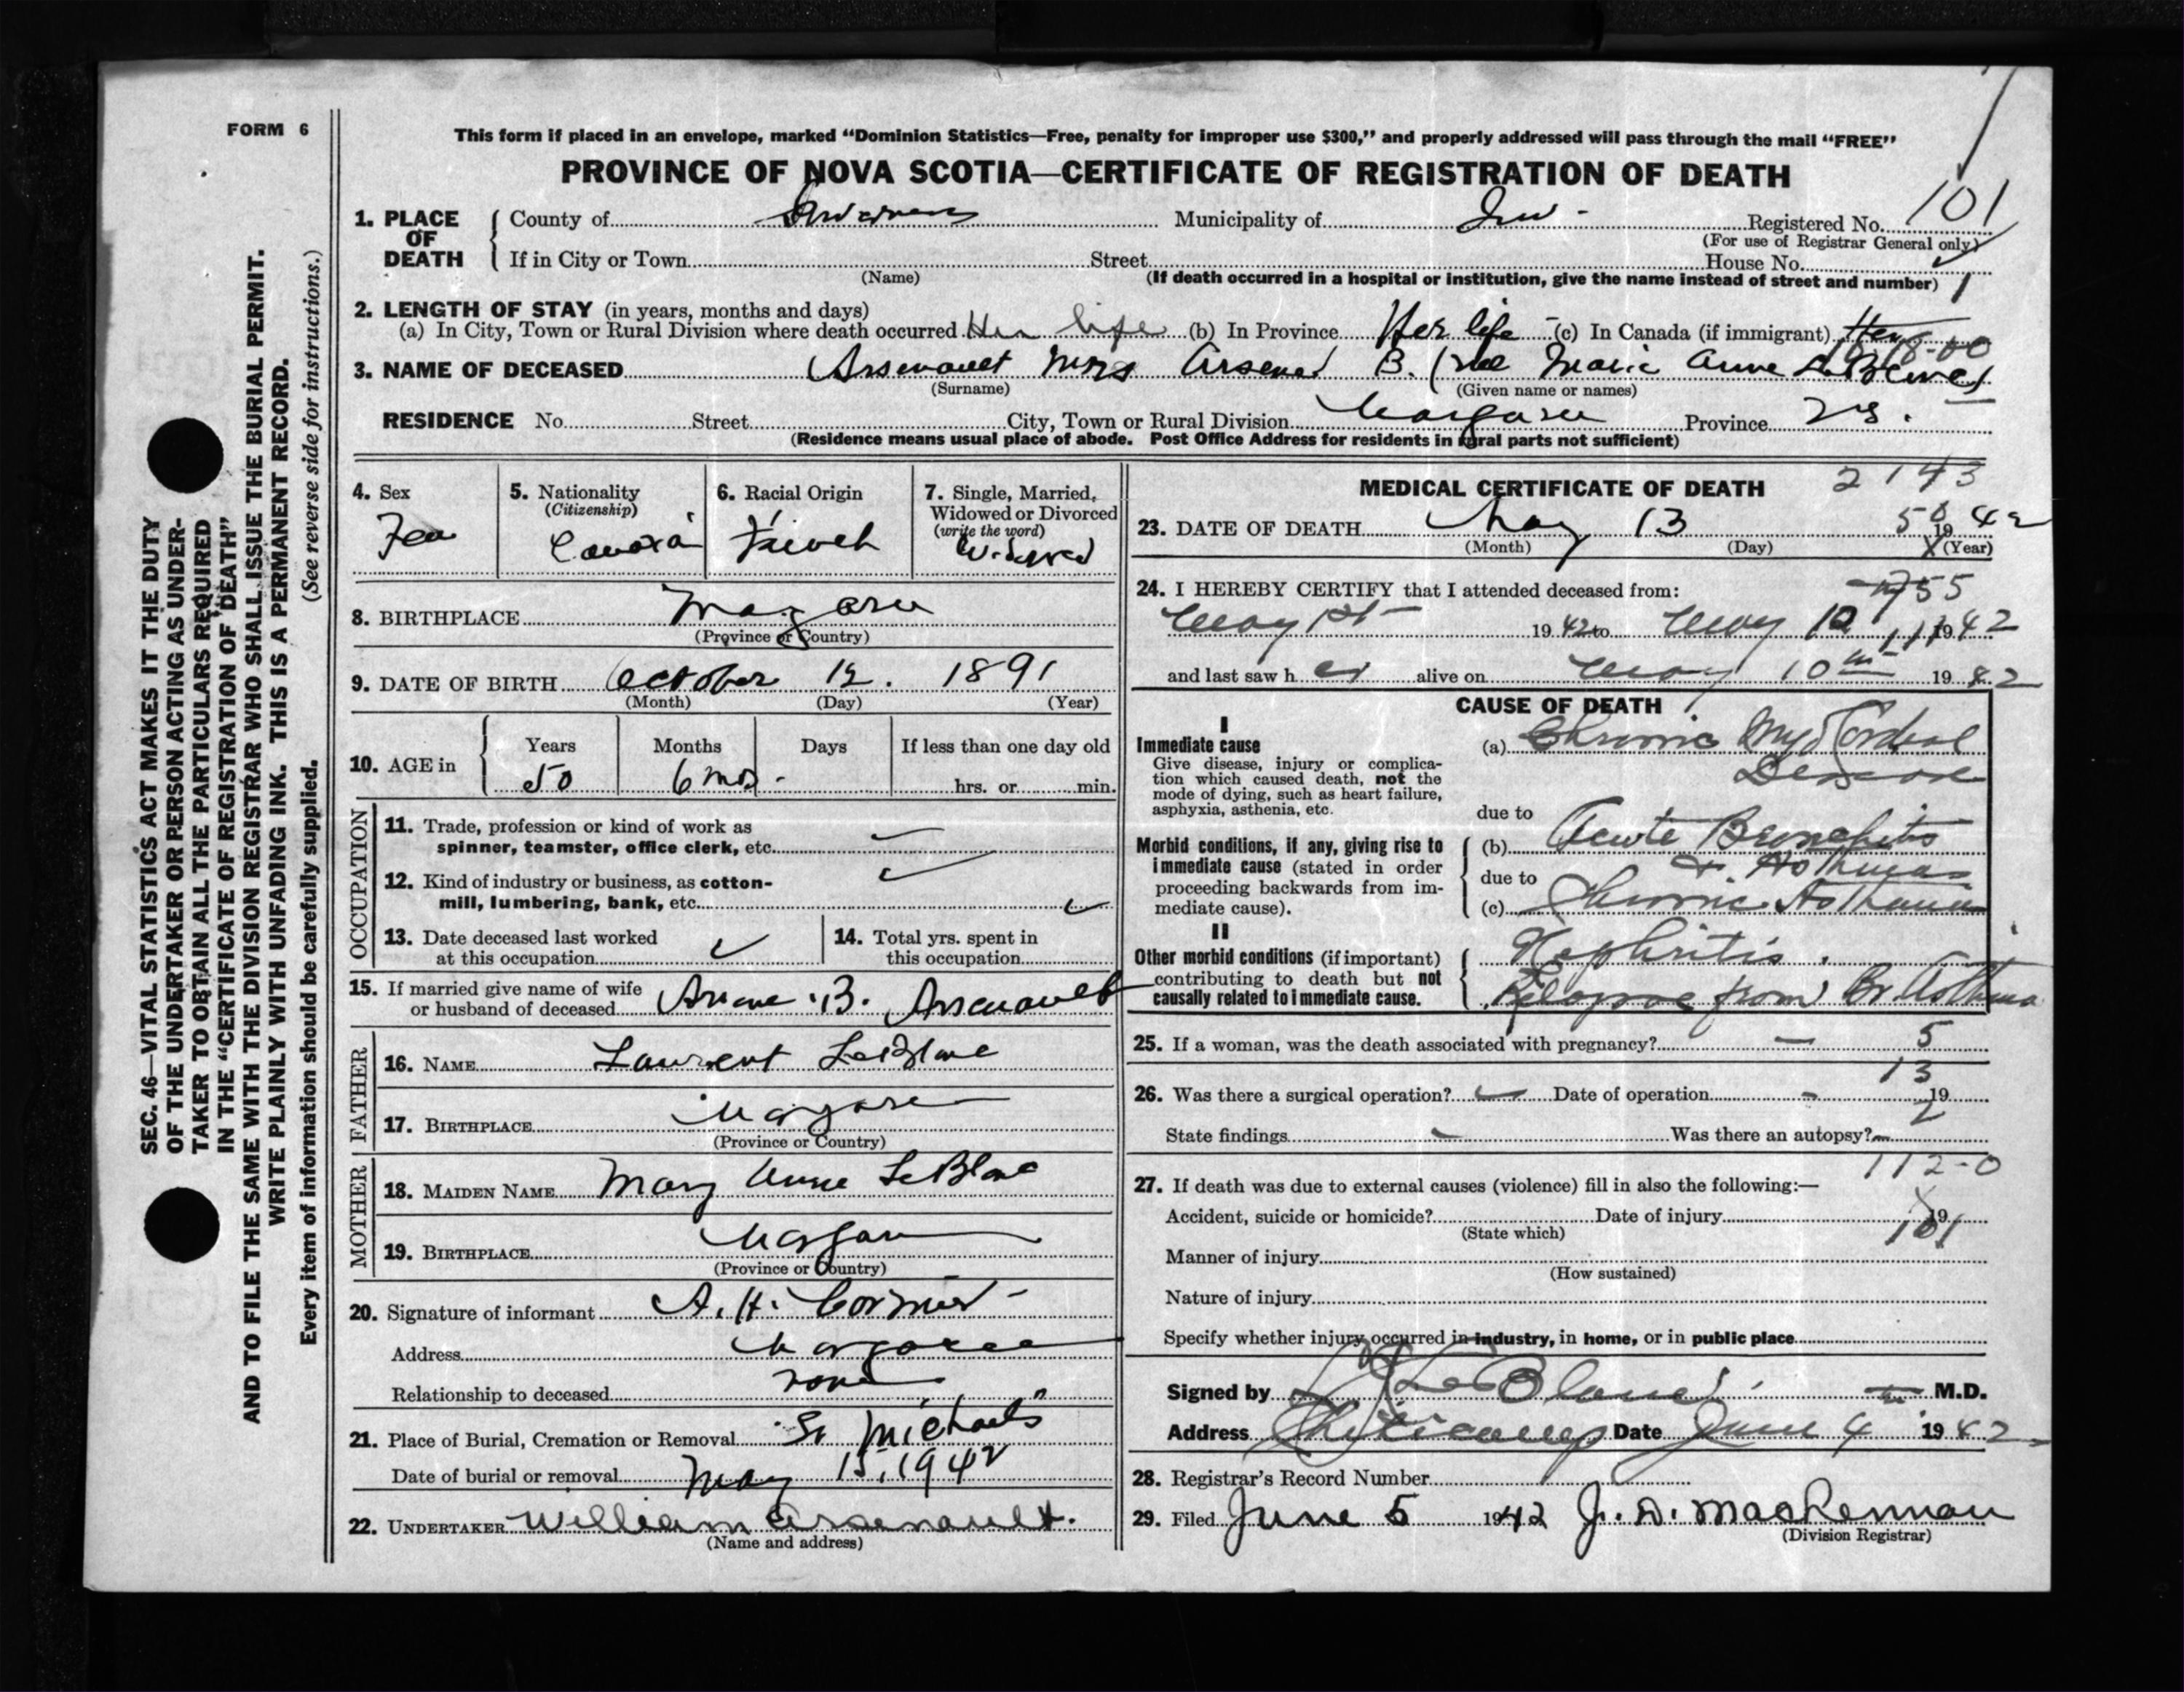 FORM 6
This form if placed in an envelope, marked “Dominion Statistics—Free, penalty for improper use $300,” and properly addressed will pass through the mail “FREE”
PROVINCE OF NOVA SCOTIA—CERTIFICATE OF REGISTRATION OF DEATH
1. PLACE OF DEATH County of Inverness Municipality of Inv - Registered No. 101
(For use of Registrar General only)
If in City or Town Street House No.
(Name) (If death occurred in a hospital or institution, give the name instead of street and number) 1
2. LENGTH OF STAY (in years, months and days)
(a) In City, Town or Rural Division where death occurred Her life (b) In Province Her life (c) In Canada (if immigrant) Her
18-00
3. NAME OF DECEASED Arsenault Mrs Arsene B. (nee Marie Anne LeBlanc)
(Surname) (Given name or names)
RESIDENCE No. Street City, Town or Rural Division Margaree Province N.S.
(Residence means usual place of abode. Post Office Address for residents in rural parts not sufficient)
4. Sex
Fem
5. Nationality
(Citizenship)
Canada
6. Racial Origin
French
7. Single, Married, Widowed or Divorced
(write the word)
Widowed
8. BIRTHPLACE Margaree
(Province or Country)
9. DATE OF BIRTH October 12. 1891
(Month) (Day) (Year)
10. AGE in Years Months Days If less than one day old
50 6 mos - hrs. or min.
OCCUPATION
11. Trade, profession or kind of work as
spinner, teamster, office clerk, etc.
12. Kind of industry or business, as cotton-
mill, lumbering, bank, etc.
13. Date deceased last worked
at this occupation
14. Total yrs. spent in
this occupation
15. If married give name of wife
or husband of deceased Arsene B. Arsenault
FATHER
16. NAME Laurent LeBlanc
17. BIRTHPLACE Margaree
(Province or Country)
MOTHER
18. MAIDEN NAME Mary Anne LeBlanc
19. BIRTHPLACE Margaree
(Province or Country)
20. Signature of informant A. H. Cormier -
Address Margaree
Relationship to deceased none
21. Place of Burial, Cremation or Removal St Michaels
Date of burial or removal May 15, 1942
22. UNDERTAKER William Arsenault.
(Name and address)
MEDICAL CERTIFICATE OF DEATH 2143
23. DATE OF DEATH May 13 50 1942
(Month) (Day) (Year)
24. I HEREBY CERTIFY that I attended deceased from: 755
May 1st 1942 to May 10 1942
and last saw her alive on May 10th 1942
CAUSE OF DEATH
I
Immediate cause
Give disease, injury or complica-
tion which caused death, not the
mode of dying, such as heart failure,
asphyxia, asthenia, etc.
(a) Chronic Myocardial
Disease
due to
Morbid conditions, if any, giving rise to
immediate cause (stated in order
proceeding backwards from im-
mediate cause).
(b) Acute Bronchitis
& Asthma
due to
(c) Chronic Asthma
II
Other morbid conditions (if important)
contributing to death but not
causally related to immediate cause.
Nephritis.
Relapse from Br. Asthma
25. If a woman, was the death associated with pregnancy? — 5
13
26. Was there a surgical operation? Date of operation - 19
2
State findings Was there an autopsy?
112-0
27. If death was due to external causes (violence) fill in also the following:—
Accident, suicide or homicide? Date of injury 19
(State which) 101
Manner of injury
(How sustained)
Nature of injury
Specify whether injury occurred in industry, in home, or in public place
Signed by LeBlanc M.D.
Address Cheticamp Date June 4 1942
28. Registrar’s Record Number
29. Filed June 5 1942 J. D. MacLennan
(Division Registrar)
SEC. 46—VITAL STATISTICS ACT MAKES IT THE DUTY
OF THE UNDERTAKER OR PERSON ACTING AS UNDER-
TAKER TO OBTAIN ALL THE PARTICULARS REQUIRED
IN THE “CERTIFICATE OF REGISTRATION OF DEATH”
AND TO FILE THE SAME WITH THE DIVISION REGISTRAR WHO SHALL ISSUE THE BURIAL PERMIT.
WRITE PLAINLY WITH UNFADING INK. THIS IS A PERMANENT RECORD.
Every item of information should be carefully supplied. (See reverse side for instructions.)